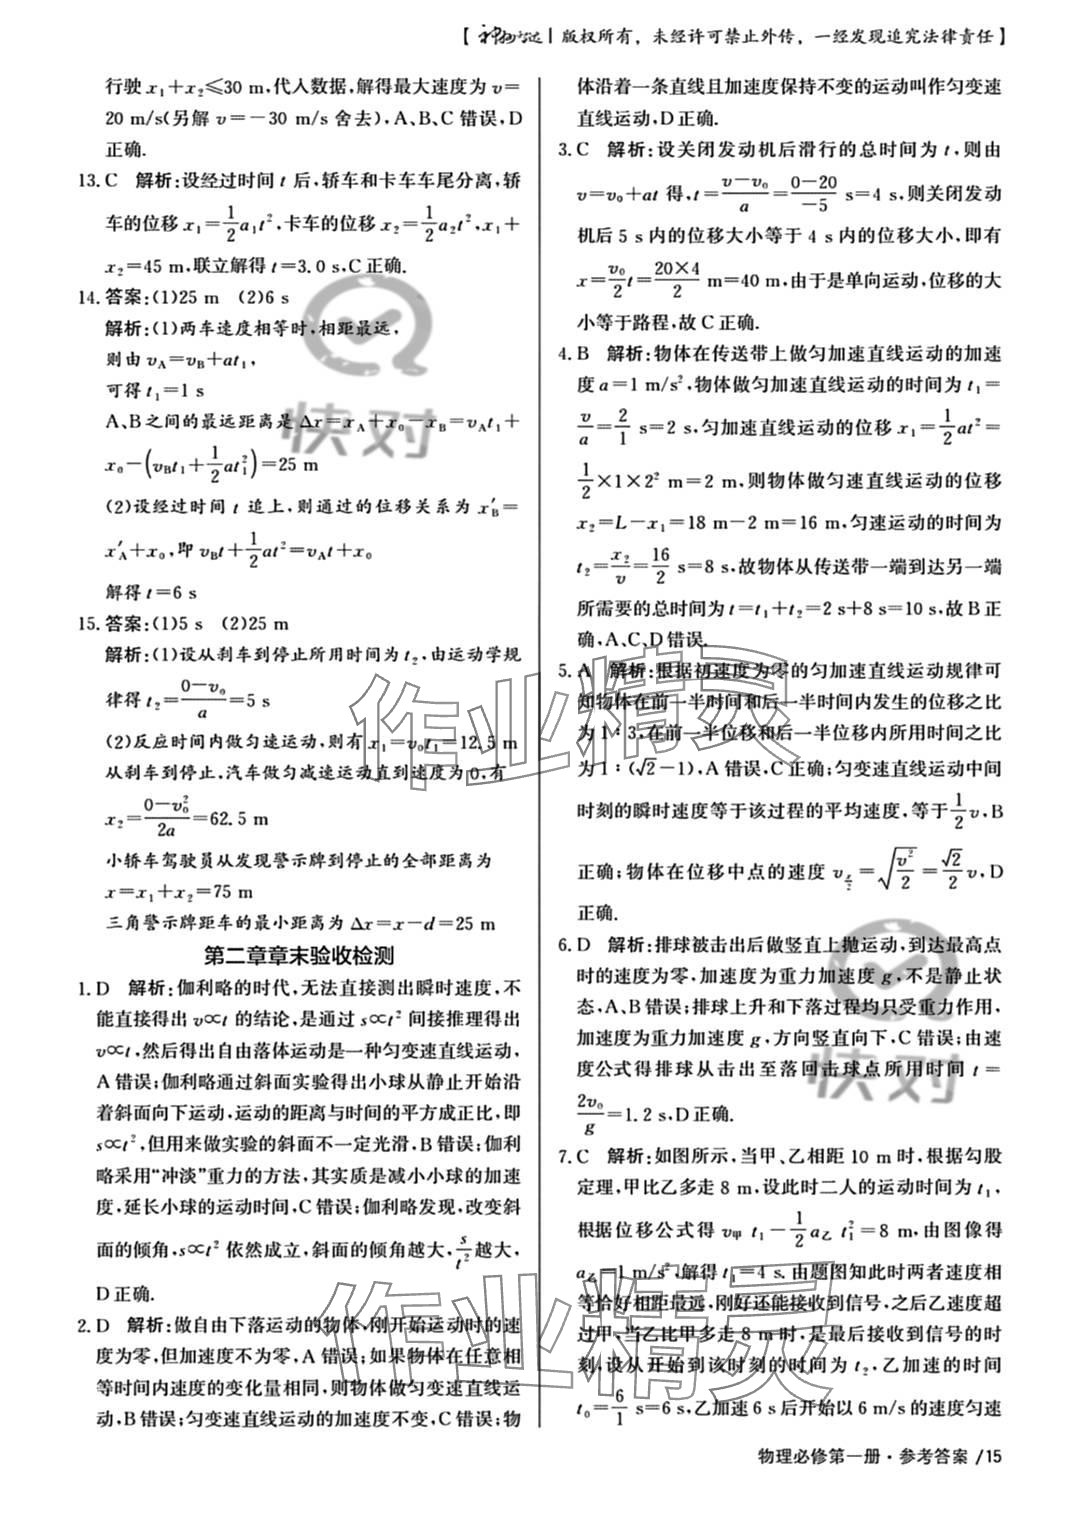 【神州文达 | 版权所有，未经许可禁止外传，一经发现追究法律责任】
行驶 x₁+x₂≤30 m,代入数据,解得最大速度为 v=
20 m/s(另解 v=－30 m/s 舍去),A、B、C 错误,D
正确.
13. C 解析:设经过时间 t 后,轿车和卡车车尾分离,轿
车的位移 x₁=1/2 a₁t²,卡车的位移 x₂=1/2 a₂t²,x₁+
x₂=45 m,联立解得 t=3.0 s,C 正确.
14. 答案:(1)25 m (2)6 s
解析:(1)两车速度相等时,相距最远,
则由 v_A=v_B+at₁,
可得 t₁=1 s
A、B之间的最远距离是 Δx=x_A+x₀－x_B=v_At₁+
x₀－(v_Bt₁+1/2 at₁²)=25 m
(2)设经过时间 t 追上,则通过的位移关系为 x′_B=
x′_A+x₀,即 v_Bt+1/2 at²=v_At+x₀
解得 t=6 s
15. 答案:(1)5 s (2)25 m
解析:(1)设从刹车到停止所用时间为 t₂,由运动学规
律得 t₂=(0－v₀)/a=5 s
(2)反应时间内做匀速运动,则有 x₁=v₀t₁=12.5 m
从刹车到停止,汽车做匀减速运动直到速度为 0,有
x₂=(0－v₀²)/2a=62.5 m
小轿车驾驶员从发现警示牌到停止的全部距离为
x=x₁+x₂=75 m
三角警示牌距车的最小距离为 Δx=x－d=25 m
第二章章末验收检测
1. D 解析:伽利略的时代,无法直接测出瞬时速度,不
能直接得出 v∝t 的结论,是通过 s∝t² 间接推理得出
v∝t,然后得出自由落体运动是一种匀变速直线运动,
A 错误;伽利略通过斜面实验得出小球从静止开始沿
着斜面向下运动,运动的距离与时间的平方成正比,即
s∝t²,但用来做实验的斜面不一定光滑,B 错误;伽利
略采用“冲淡”重力的方法,其实质是减小小球的加速
度,延长小球的运动时间,C 错误;伽利略发现,改变斜
面的倾角,s∝t² 依然成立,斜面的倾角越大,s/t² 越大,
D 正确.
2. D 解析:做自由下落运动的物体,刚开始运动时的速
度为零,但加速度不为零,A 错误;如果物体在任意相
等时间内速度的变化量相同,则物体做匀变速直线运
动,B 错误;匀变速直线运动的加速度不变,C 错误;物
体沿着一条直线且加速度保持不变的运动叫作匀变速
直线运动,D 正确.
3. C 解析:设关闭发动机后滑行的总时间为 t,则由
v=v₀+at 得,t=(v－v₀)/a=(0－20)/－5 s=4 s,则关闭发动
机后 5 s 内的位移大小等于 4 s 内的位移大小,即有
x=v₀/2 t=(20×4)/2 m=40 m,由于是单向运动,位移的大
小等于路程,故 C 正确.
4. B 解析:物体在传送带上做匀加速直线运动的加速
度 a=1 m/s²,物体做匀加速直线运动的时间为 t₁=
v/a=2/1 s=2 s,匀加速直线运动的位移 x₁=1/2 at²=
1/2×1×2² m=2 m,则物体做匀速直线运动的位移
x₂=L－x₁=18 m－2 m=16 m,匀速运动的时间为
t₂=x₂/v=16/2 s=8 s,故物体从传送带一端到达另一端
所需要的总时间为 t=t₁+t₂=2 s+8 s=10 s,故 B 正
确,A、C、D 错误.
5. A 解析:根据初速度为零的匀加速直线运动规律可
知物体在前一半时间和后一半时间内发生的位移之比
为 1∶3,在前一半位移和后一半位移内所用时间之比
为 1∶(√2－1),A 错误,C 正确;匀变速直线运动中间
时刻的瞬时速度等于该过程的平均速度,等于 1/2 v,B
正确;物体在位移中点的速度 v_{x/2}=√(v²/2)=√2/2 v,D
正确.
6. D 解析:排球被击出后做竖直上抛运动,到达最高点
时的速度为零,加速度为重力加速度 g,不是静止状
态,A、B 错误;排球上升和下落过程均只受重力作用,
加速度为重力加速度 g,方向竖直向下,C 错误;由速
度公式得排球从击出至落回击球点所用时间 t=
2v₀/g=1.2 s,D 正确.
7. C 解析:如图所示,当甲、乙相距 10 m 时,根据勾股
定理,甲比乙多走 8 m,设此时二人的运动时间为 t₁,
根据位移公式得 v甲 t₁－1/2 a乙 t₁²=8 m,由图像得
a乙=1 m/s²,解得 t₁=4 s.由题图知此时两者速度相
等恰好相距最远,刚好还能接收到信号,之后乙速度超
过甲,当乙比甲多走 8 m 时,是最后接收到信号的时
刻,设从开始到该时刻的时间为 t₂,乙加速的时间
t₀=6/1 s=6 s,乙加速 6 s 后开始以 6 m/s 的速度匀速
物理必修第一册·参考答案 /15
快对
快对
作业精灵
作业精灵